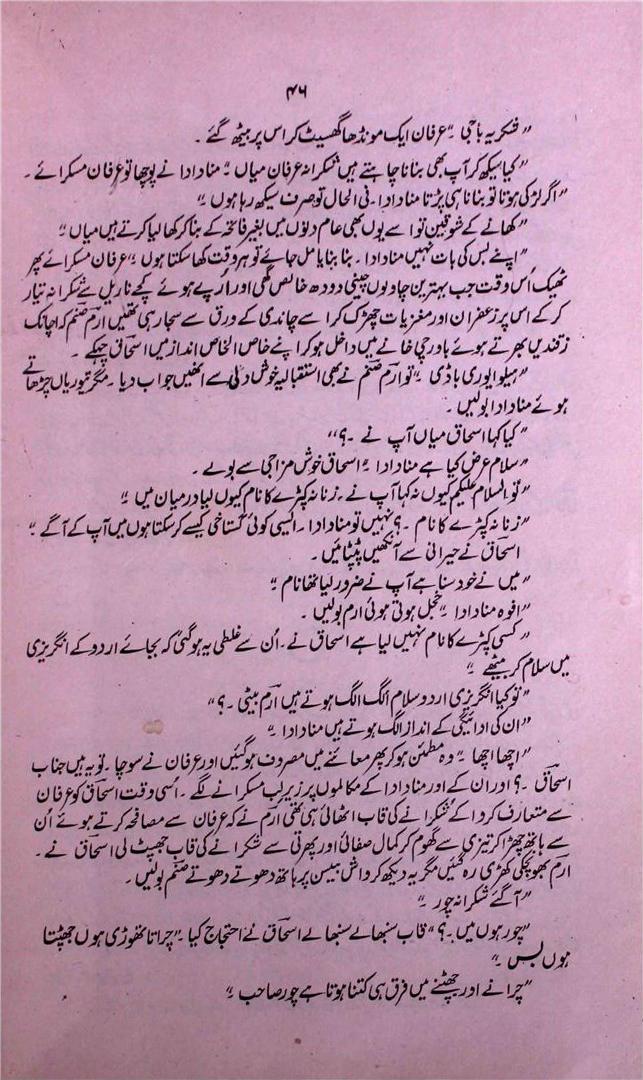 ۴۶
”شکریہ باجی ۔“ عرفان ایک مونڈھا گھسیٹ کر اس پر بیٹھ گئے ۔
”کیا سیکھ کر آپ بھی بنانا چاہتے ہیں شکرانہ عرفان میاں ۔“ منا دادا نے پوچھا تو عرفان مسکرائے ۔
”اگر لڑکی ہوتا تو بنانا ہی پڑتا منا دادا ۔ فی الحال تو صرف سیکھ رہا ہوں ۔“
”کھانے کے شوقین تو اسے یوں بھی عام دنوں میں بغیر فاتحہ کے بنا کر کھا لیا کرتے ہیں میاں ۔“
”اپنے بس کی بات نہیں منا دادا ۔ بنا بنایا مل جائے تو ہر وقت کھا سکتا ہوں ۔“ عرفان مسکرائے پھر
ٹھیک اُس وقت جب بہترین چاولوں چینی دودھ خالص گھی اور اُرپے ہوئے کچے ناریل سے شکرانہ تیار
کر کے اس پر زعفران اور مغزیات چھڑک کر اسے چاندی کے ورق سے سجا رہی تھیں ارم صنم کہ اچانک
زقندیں بھرتے ہوئے باورچی خانے میں داخل ہو کر اپنے خاص الخاص انداز میں اسحاق چہکے ۔
”ہیلو ایوری باڈی ۔“ تو ارم صنم نے بھی استقبالیہ خوش دلی سے انھیں جواب دیا ۔ مگر تیوریاں چڑھاتے
ہوئے منا دادا بولیں ۔
”کیا کہا اسحاق میاں آپ نے ۔؟“
”سلام عرض کیا ہے منا دادا ۔“ اسحاق خوش مزاجی سے بولے ۔
”تو السلام علیکم کیوں نہ کہا آپ نے ۔ زنانہ کپڑے کا نام کیوں لیا درمیان میں ۔“
”زنانہ کپڑے کا نام ۔؟ نہیں تو منا دادا ۔ ایسی کوئی گستاخی کیسے کر سکتا ہوں میں آپ کے آگے ۔“
اسحاق نے حیرانی سے آنکھیں پٹپٹائیں ۔
”میں نے خود سنا ہے آپ نے ضرور لیا تھا نام ۔“
”افوہ منا دادا ۔“ خجل ہوتی ہوئی ارم بولیں ۔
”کسی کپڑے کا نام نہیں لیا ہے اسحاق نے ۔ اُن سے غلطی یہ ہو گئی کہ بجائے اردو کے انگریزی
میں سلام کر بیٹھے ۔“
”تو کیا انگریزی اردو سلام الگ الگ ہوتے ہیں ارم بیٹی ۔؟“
”ان کی ادائیگی کے انداز الگ ہوتے ہیں منا دادا ۔“
”اچھا اچھا ۔“ وہ مطمئن ہو کر پھر معائنے میں مصروف ہو گئیں اور عرفان نے سوچا ۔ تو یہ ہیں جناب
اسحاق ۔؟ اور ان کے اور منا دادا کے مکالموں پر زیرِ لب مسکرانے لگے ۔ اُسی وقت اسحاق کو عرفان
سے متعارف کروا کے شکرانے کی قاب اٹھائی ہی تھی ارم نے کہ عرفان سے مصافحہ کرتے ہوئے اُن
سے ہاتھ چھڑا کر تیزی سے گھوم کر کمال صفائی اور پھرتی سے شکرانے کی قاب جھپٹ لی اسحاق نے ۔
ارم بھوچکی کھڑی رہ گئیں مگر یہ دیکھ کر واش بیسن پر ہاتھ دھوتے دھوتے صنم بولیں ۔
”آ گئے شکرانہ چور ۔“
”چور ہوں میں ۔؟“ قاب سنبھالے سنبھالے اسحاق نے احتجاج کیا ۔ ”چراتا تھوڑی ہوں جھپٹتا
ہوں بس ۔“
”چرانے اور جھپٹنے میں فرق ہی کتنا ہوتا ہے چور صاحب ۔“